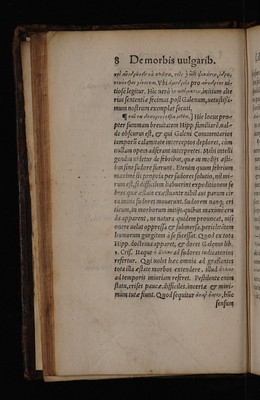 8 De morbis uulgarib.
pro
tiosè legitur. Hic uerò initium alte
rius sententiæ fecimus post Galenum, uetustissi-
mum nostrum exemplar secuti.
Hic locus pro-
pter summam breuitatem Hipp. familiarē, ual-
de obscurus est, & qui Galeni Commentarios
temporū calamitate interceptos deploret, cùm
nullam opem adferant interpretes. Mihi intelli
gendus uidetur de febribus, quæ in morbis æsti-
bus sine sudore fuerunt. Etenim quum febrium
maximè sit propria per sudores solutio, nil mi-
rum est, si difficilem habuerint expeditionem fe
bres quæ æstate exæstuante nihil aut parum cir
ca initia sudores mouerunt. Sudorem nanq; cri
ticum, in morborum initijs quibus maximè cru
da apparent, ne natura quidem promouet, nisi
onere uelut oppressa & submersa, periclitetur
humorum gurgitem à se secessat. Quod ex tota
Hipp. doctrina apparet, & docet Galenus lib.
1. Cris. Itaque ad sudores iudicatorios
refertur. Qui uolet hæc omnia ad grassantes
tota illa æstate morbos extendere, illud
ad temporis iniuriam referet. Pestilente enim
statu, crises paucæ, difficiles, incertæ & mini-
mùm tutæ fiunt. Quod sequitur huc
sensum